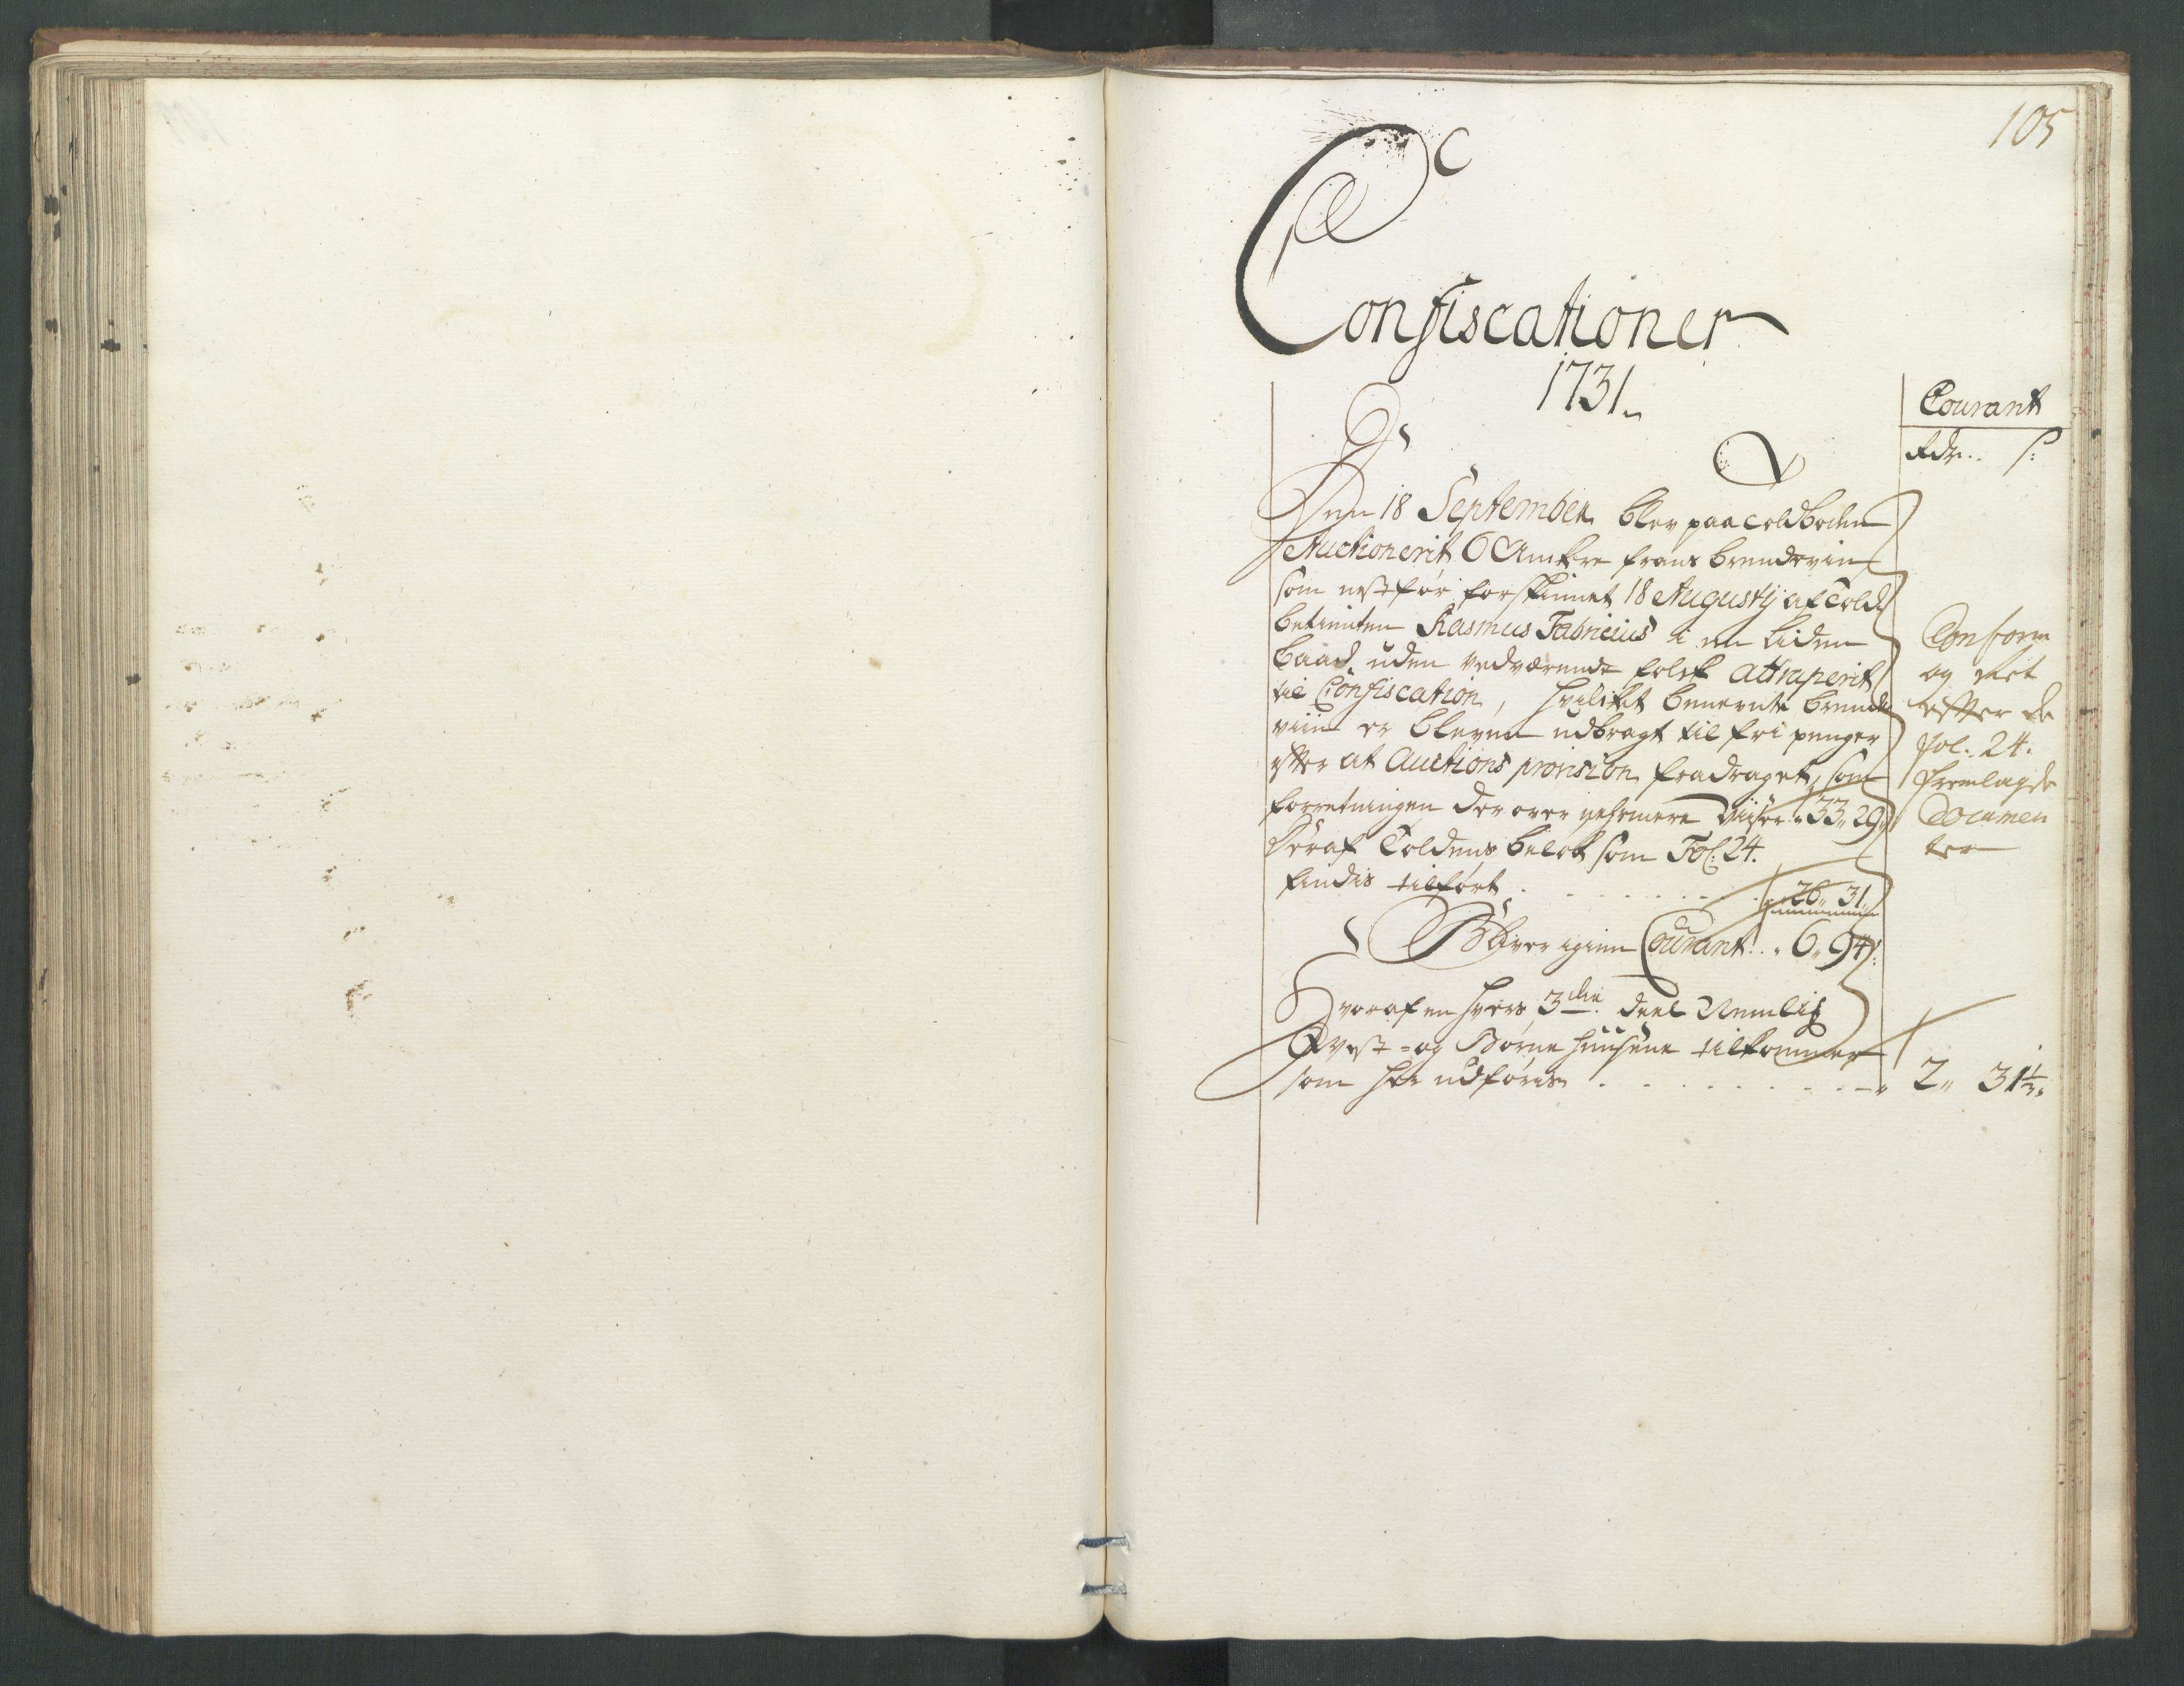 105
Confiscationer
1731.
Courant
Rdr. s:
Den 18 September blev paa Toldboden
Auctionerit 6 Ancker frans brendeviin
som nestfør forskinnet 18 Augustÿ af Told
betienten Rasmus Fabricius i en liden
baad, uden vedværende folck attraperit
til Confiscation, hvilcket benevnte brende
viin er bleven udbragt til fri penger
efter at Auctions provision fradraget, som
forretningen derover nehrmere viiser 33 29
Deraf Toldens beløb som Fol: 24.
findis tilført . . . . . . 26 31
Bliver igien Courant . . 6 94
Hvoraf en hvers 3die deel Nemlig
Qvæst- og Børnehuusene tilkommer
som her udføris . . . . . . 2 31 1/3
Conform
og ret
efter de
fol: 24.
fremlagde
Documen
ter